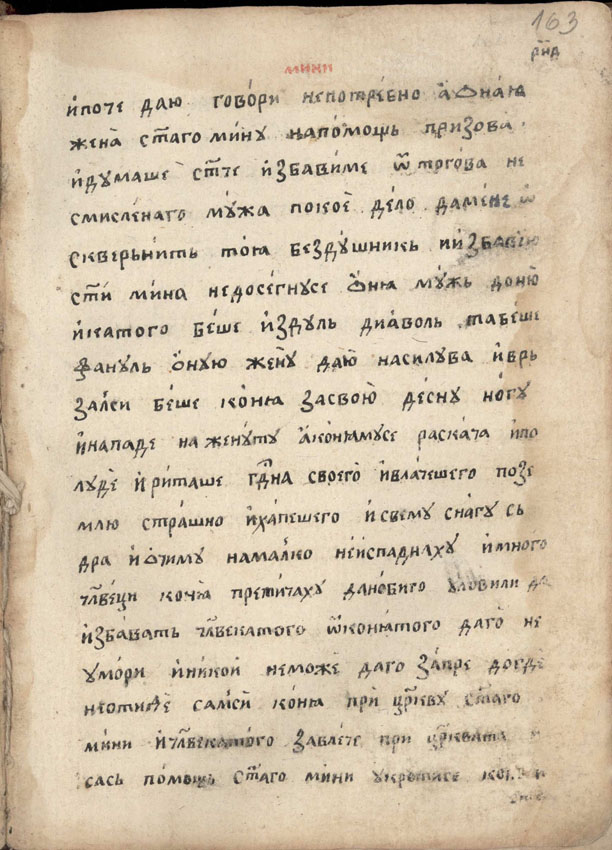 163
рн҃д
мини
и҆поче даю говѡ́ри непотре́бно а҆ ѻ҆наꙗ
жена̀ ст҃аго мину напомощь призова̀.
и҆думаше ст҃че и҆збавиме ѿ тргова не
смисленаго мꙋ́жа покоѐ дело даме́не ѡ҆
сквернить тоꙗ бездꙋшникь и҆и҆збави
ст҃и мина недосе́гнусе ѻ҆ню мꙋ́жь доню̀
и҆катого бе́ше и҆здꙋль диаволь табе́ше
фануль ѻ҆ную жену̀ даю̀ насилува и҆врь
залси бе́ше коню засвою̀ десну но́гꙋ
и҆нападе наженуту а҆конюмусе раскача и҆по
лудѐ и҆риташе г҃дна своего и҆влачешего позе
млю страшно и҆хапешего и҆свему снагу сь
дра и҆ѻ҆чиму намалко неи҆спаднаху и҆много
чл҃веци кочиꙗ претичаху данѡбиго уловили да
и҆збавать чл҃векатого ѿконютого даго не
умори и҆никои неможе даго запре догде
неотиде самси коню при цр҃кву ст҃аго
мини и҆чл҃векатого завлече при цр҃квата
сась помощь ст҃аго мини укротисе